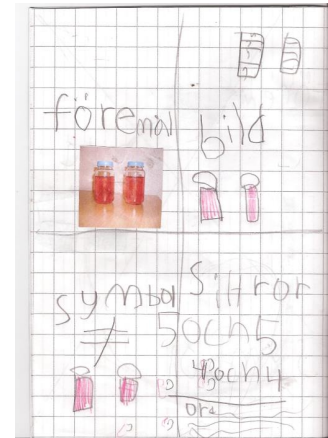 föremål
bild
symbol
≠
Siffror
5 och 5
4 och 4
ord